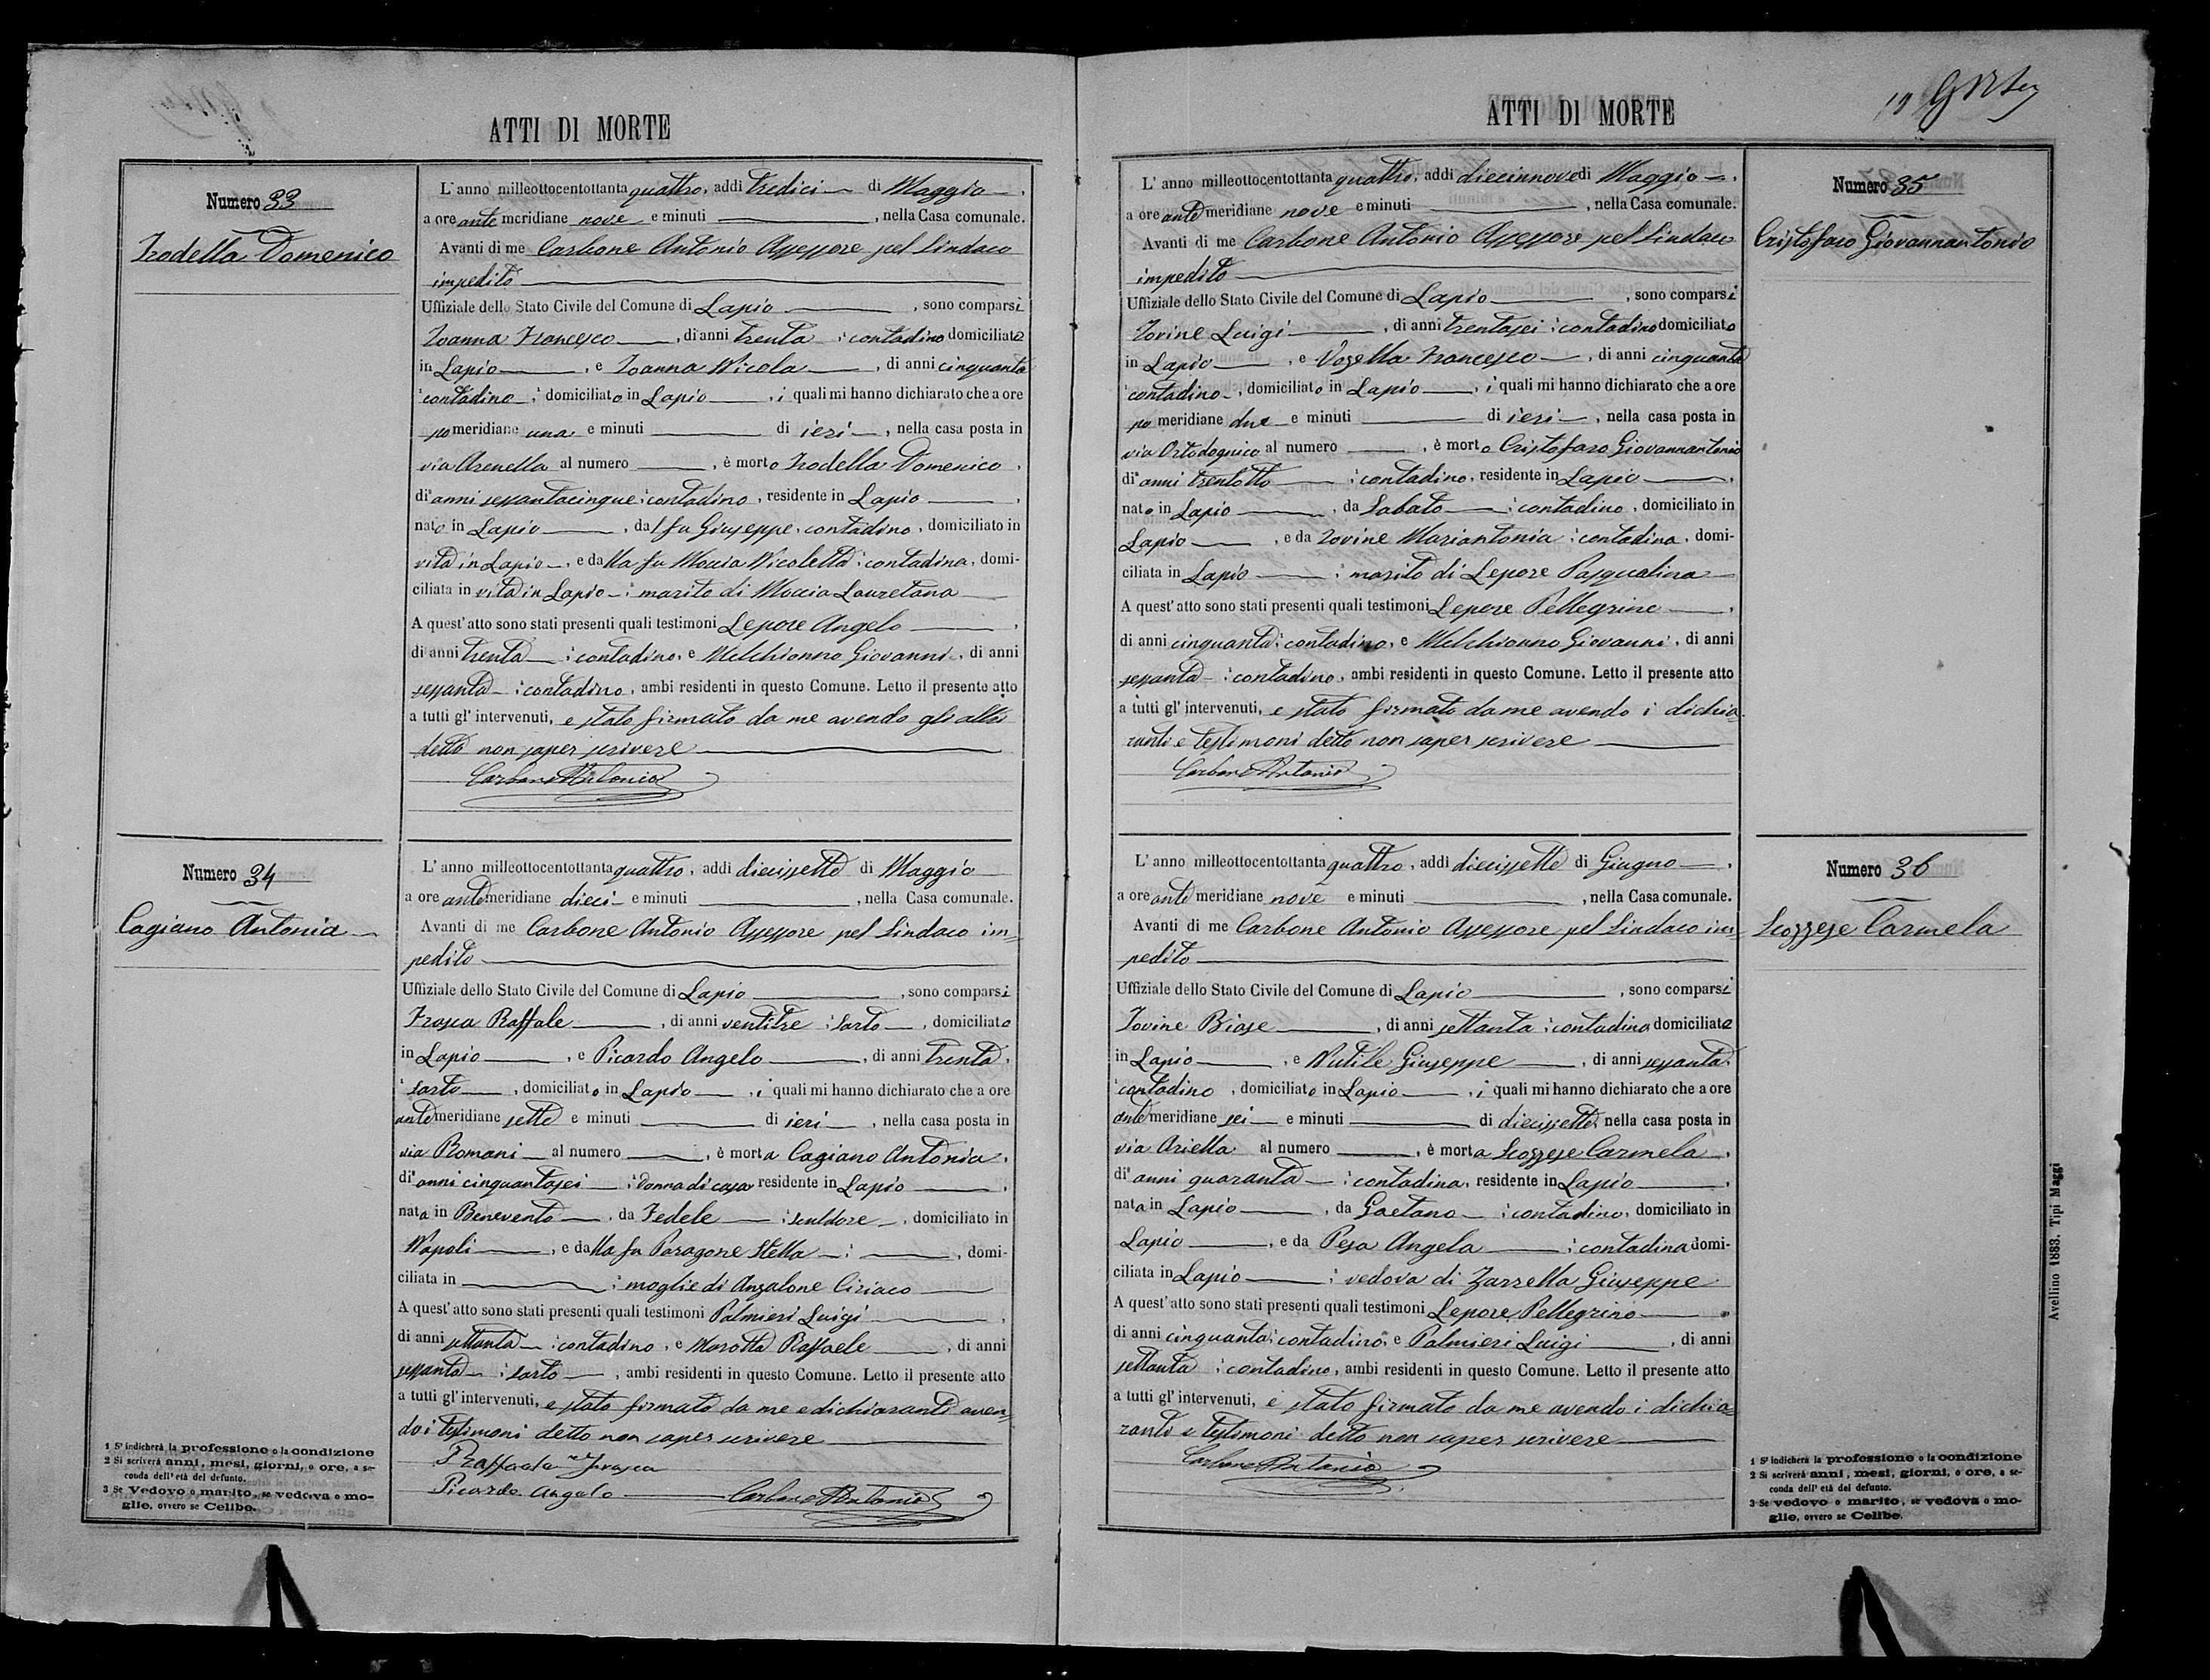 ATTI DI MORTE
Numero 33
Trodella Domenico
L'anno milleottocentottantaquattro, addì tredici di Maggio,
a ore ante meridiane nove e minuti , nella Casa comunale.
Avanti di me Carbone Antonio Assessore pel Sindaco
impedito
Uffiziale dello Stato Civile del Comune di Lapio , sono comparsi
Ioanna Francesco , di anni trenta , contadino domiciliato
in Lapio , e Ioanna Nicola , di anni cinquanta
contadino, domiciliato in Lapio , i quali mi hanno dichiarato che a ore
po meridiane una e minuti di ieri , nella casa posta in
via Arenella al numero , è morto Trodella Domenico,
di anni sessantacinque, contadino, residente in Lapio ,
nato in Lapio , dal fu Giuseppe, contadino, domiciliato in
vita in Lapio , e dalla fu Moccia Nicoletta, contadina, domi-
ciliata in vita in Lapio , marito di Moccia Lauretana
A quest'atto sono stati presenti quali testimoni Lepore Angelo ,
di anni trenta , contadino, e Melchionno Giovanni, di anni
sessanta , contadino, ambi residenti in questo Comune. Letto il presente atto
a tutti gl'intervenuti, e stato firmato da me avendo gli altri
detto non saper scrivere
Carbone Antonio
Numero 34
Cagiano Antonia
L'anno milleottocentottantaquattro, addì diecissette di Maggio
a ore antemeridiane dieci e minuti , nella Casa comunale.
Avanti di me Carbone Antonio Assessore pel Sindaco im-
pedito
Uffiziale dello Stato Civile del Comune di Lapio , sono comparsi
Frasca Raffale , di anni ventitre , sarto , domiciliato
in Lapio , e Picardo Angelo , di anni trenta,
sarto , domiciliato in Lapio , i quali mi hanno dichiarato che a ore
antemeridiane sette e minuti di ieri , nella casa posta in
via Romani al numero , è morta Cagiano Antonia,
di anni cinquantasei , donna di casa residente in Lapio ,
nata in Benevento , da Fedele , scultore , domiciliato in
Napoli , e dalla fu Paragone Stella , , domi-
ciliata in , moglie di Anzalone Ciriaco
A quest'atto sono stati presenti quali testimoni Palmieri Luigi ,
di anni settanta , contadino, e Marotta Raffaele , di anni
sessanta , sarto , ambi residenti in questo Comune. Letto il presente atto
a tutti gl'intervenuti, e stato firmato da me e dichiaranti aven-
do i testimoni detto non saper scrivere
Raffaele Frasca
Picardo Angelo Carbone Antonio
1 S'indicherà la professione o la condizione
2 Si scriverà anni, mesi, giorni, o ore, a se-
conda dell'età del defunto.
3 Se vedovo o marito, se vedova o mo-
glie, ovvero se Celibe.
ATTI DI MORTE
19
Numero 35
Cristofaro Giovannantonio
L'anno milleottocentottantaquattro, addì diecinnove di Maggio ,
a ore ante meridiane nove e minuti , nella Casa comunale.
Avanti di me Carbone Antonio Assessore pel Sindaco
impedito
Uffiziale dello Stato Civile del Comune di Lapio , sono comparsi
Iovine Luigi , di anni trentasei , contadino domiciliato
in Lapio , e Vosella Francesco , di anni cinquanta
contadino , domiciliato in Lapio , i quali mi hanno dichiarato che a ore
po meridiane due e minuti di ieri , nella casa posta in
via al numero , è morto Cristofaro Giovannantonio
di anni trentotto , contadino, residente in Lapio ,
nato in Lapio , da Sabato , contadino , domiciliato in
Lapio , e da Iovine Mariantonia , contadina , domi-
ciliata in Lapio , marito di Lepore Pasqualina
A quest'atto sono stati presenti quali testimoni Lepore Pellegrino ,
di anni cinquanta, contadino, e Melchionno Giovanni , di anni
sessanta , contadino, ambi residenti in questo Comune. Letto il presente atto
a tutti gl'intervenuti, e stato firmato da me avendo i dichia-
ranti e testimoni detto non saper scrivere
Carbone Antonio
Numero 36
Scozzese Carmela
L'anno milleottocentottantaquattro, addì diecissette di Giugno ,
a ore antemeridiane nove e minuti , nella Casa comunale.
Avanti di me Carbone Antonio Assessore pel Sindaco im-
pedito
Uffiziale dello Stato Civile del Comune di Lapio , sono comparsi
Iovine Biase , di anni settanta , contadino domiciliato
in Lapio , e Nutile Giuseppe , di anni sessanta,
contadino , domiciliato in Lapio , i quali mi hanno dichiarato che a ore
antemeridiane sei e minuti di diecissette, nella casa posta in
via Ariella al numero , è morta Scozzese Carmela ,
di anni quaranta , contadina, residente in Lapio ,
nata in Lapio , da Gaetano , contadino, domiciliato in
Lapio , e da Pesa Angela , contadina domi-
ciliata in Lapio , vedova di Zarrella Giuseppe
A quest'atto sono stati presenti quali testimoni Lepore Pellegrino
di anni cinquanta, contadino, e Palmieri Luigi , di anni
settanta , contadino, ambi residenti in questo Comune. Letto il presente atto
a tutti gl'intervenuti, e stato firmato da me avendo i dichia-
ranti e testimoni detto non saper scrivere
Carbone Antonio
1 S'indicherà la professione o la condizione
2 Si scriverà anni, mesi, giorni, o ore, a se-
conda dell'età del defunto.
3 Se vedovo o marito, se vedova o mo-
glie, ovvero se Celibe.
Avellino 1883. Tipi Maggi